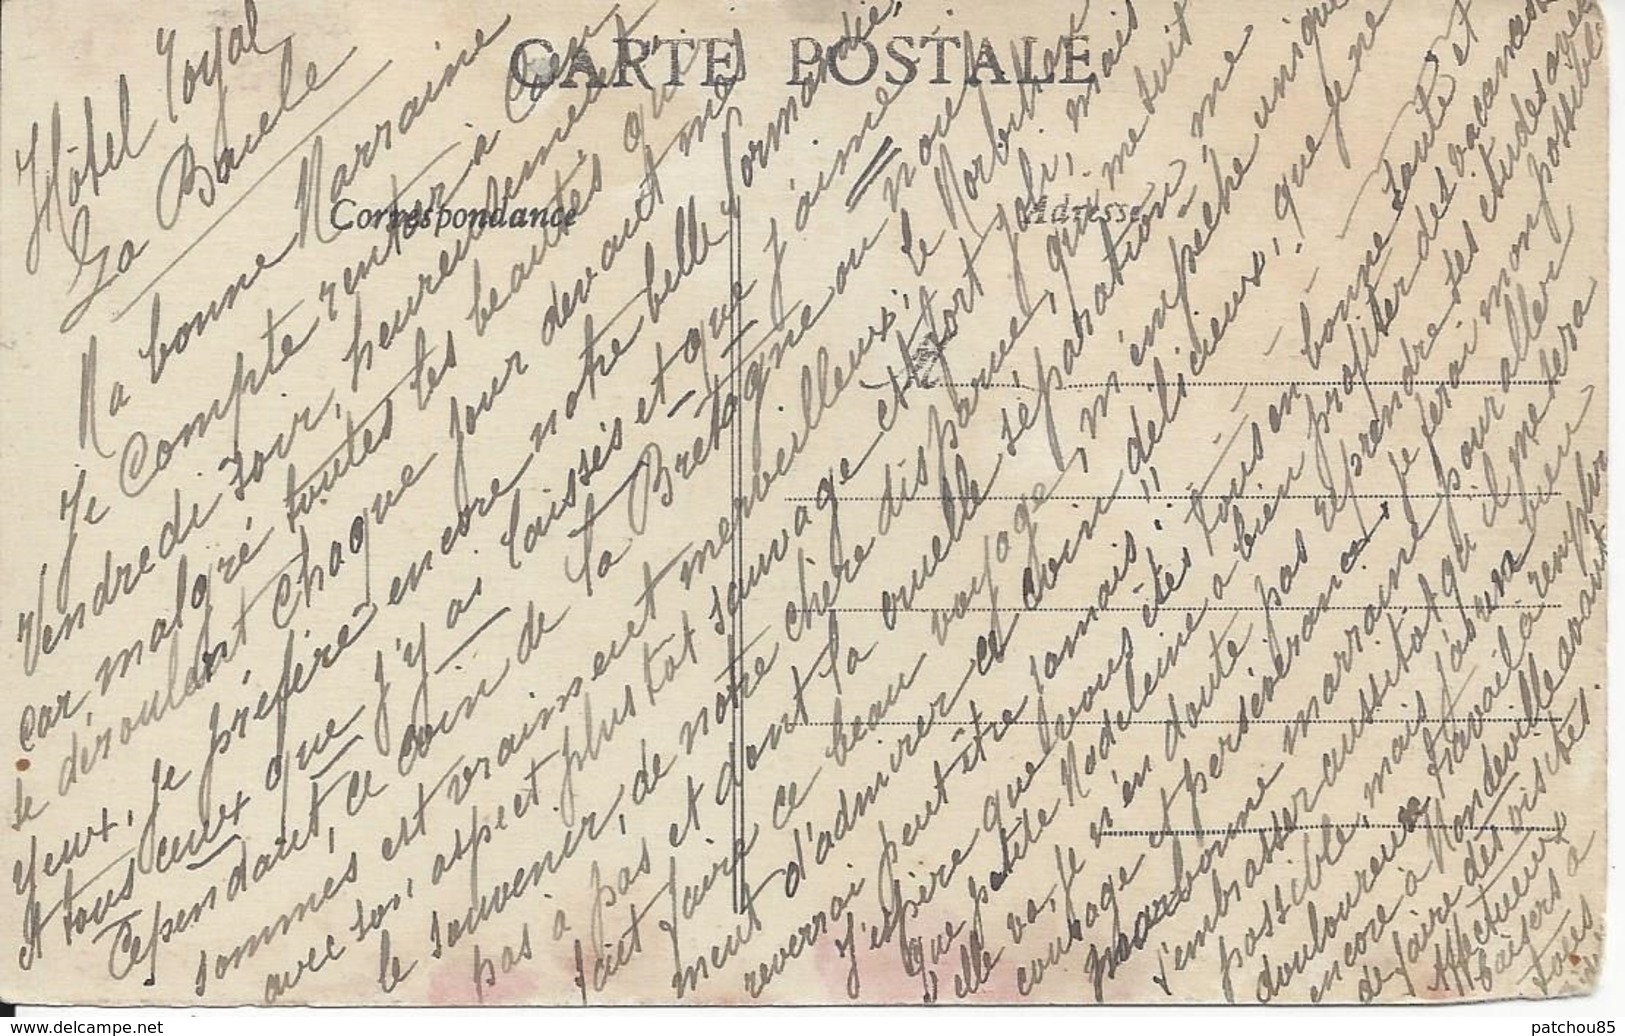 CARTE POSTALE
Correspondance
Adresse
Hôtel Royal
La Baule
Ma bonne Marraine
Je compte rentrer à Caen
Vendredi soir, heureusement
car, malgré toutes les beautés qui
se déroulent chaque jour devant mes
yeux, je préfère encore notre belle Normandie,
et tous ceux que j'y ai laissés et que j'aime !
Cependant, ce coin de la Bretagne où nous
sommes est vraiment merveilleux; le Morbihan
avec son aspect plus tôt sauvage est fort joli, mais
le souvenir, de notre chère disparue, qui me suit
pas à pas et dont la cruelle séparation me
fait faire ce beau voyage, m'empêche unique
ment d'admirer ce coin délicieux, que je ne
reverrai peut être jamais !!
J'espère que vous êtes tous en bonne santé et
que petite Madeleine a bien profiter des vacances
elle va, je n'en doute pas reprendre ses études avec
courage et persévérance, je ferai mon possible
ma bonne marraine pour aller
t'embrasser aussitôt qu'il me sera
possible, mais j'aurai un bien
douloureux travail à remplir
encore à Mondeville avant
de faire des visites.
Affectueux
baisers à
tous
patchou85